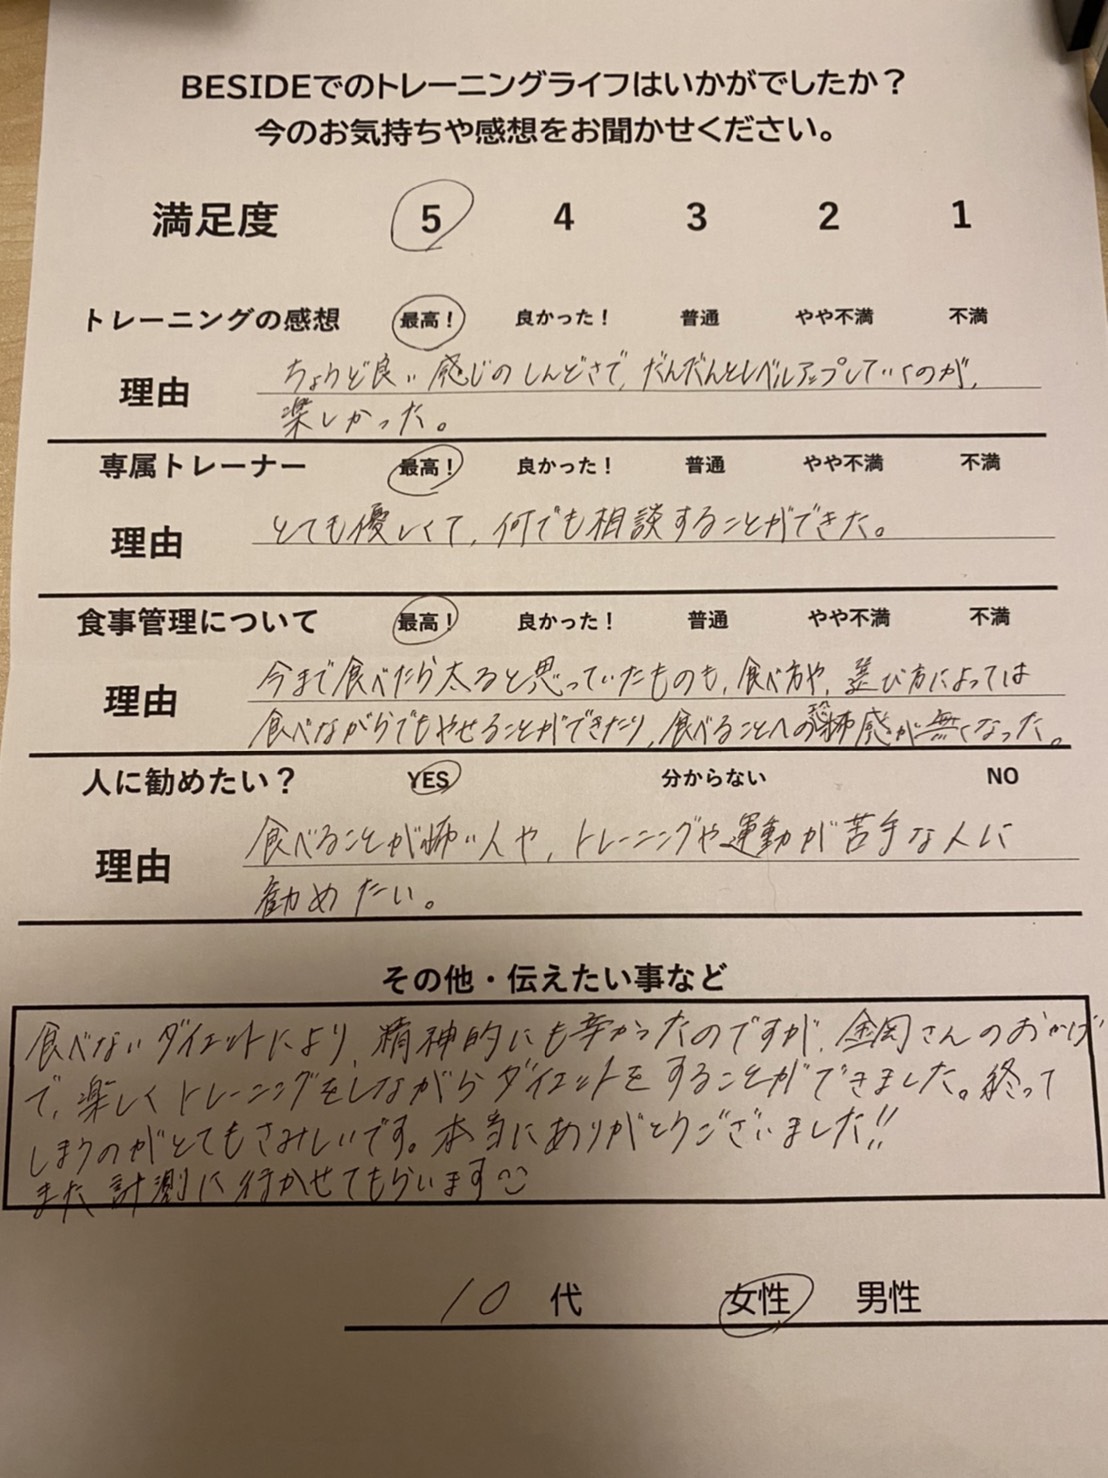 BESIDEでのトレーニングライフはいかがでしたか？
今のお気持ちや感想をお聞かせください。
満足度 5 4 3 2 1
トレーニングの感想 最高！ 良かった！ 普通 やや不満 不満
理由 ちょうど良い感じのしんどさで、だんだんとレベルアップしていくのが、
楽しかった。
専属トレーナー 最高！ 良かった！ 普通 やや不満 不満
理由 とても優しくて、何でも相談することができた。
食事管理について 最高！ 良かった！ 普通 やや不満 不満
理由 今まで食べたら太ると思っていたものも、食べ方や、選び方によっては
食べながらでもやせることができたり、食べることへの恐怖感が無くなった。
人に勧めたい？ YES 分からない NO
理由 食べることが怖い人や、トレーニングや運動が苦手な人に
勧めたい。
その他・伝えたい事など
食べないダイエットにより、精神的にも辛かったのですが、金岡さんのおかげ
で、楽しくトレーニングをしながらダイエットをすることができました。終って
しまうのがとてもさみしいです。本当にありがとうございました!!
また計測に行かせてもらいます
10代 女性 男性